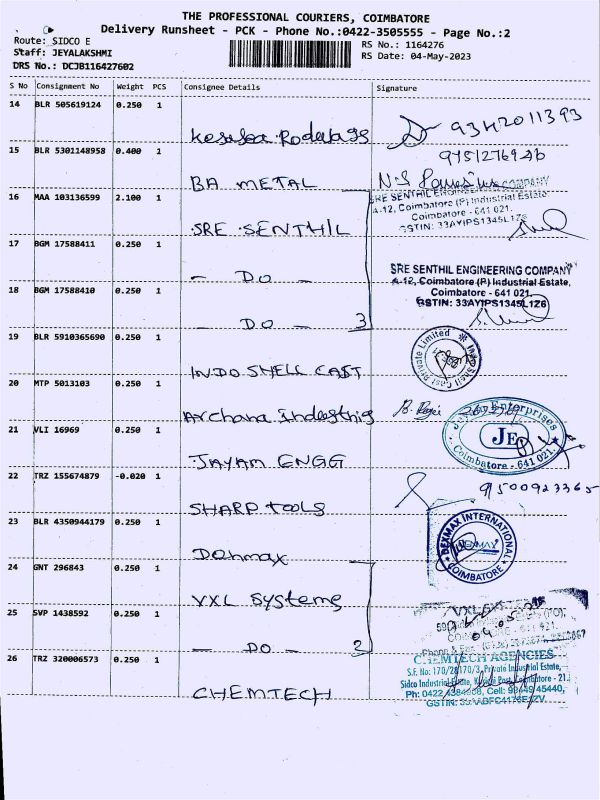 THE PROFESSIONAL COURIERS, COIMBATORE
Delivery Runsheet - PCK - Phone No.:0422-3505555 - Page No.:2
Route: SIDCO E
RS No.: 1164276
Staff: JEYALAKSHMI
RS Date: 04-May-2023
DRS No.: DCJB116427602
S No Consignment No Weight PCS Consignee Details Signature
14 BLR 505619124 0.250 1
9342011393
15 BLR 5301148958 0.400 1
BA METAL
16 MAA 103136599 2.100 1
SRE SENTHIL ENGINEERING COMPANY
A-12, Coimbatore (P) Industrial Estate
Coimbatore - 641 021.
GSTIN: 33AYIPS1345L1Z6
SRE SENTHIL
17 BGM 17588411 0.250 1
- DO -
SRE SENTHIL ENGINEERING COMPANY
A-12, Coimbatore (P) Industrial Estate,
Coimbatore - 641 021.
GSTIN: 33AYIPS1345L1Z6
18 BGM 17588410 0.250 1
- DO - 3
19 BLR 5910365690 0.250 1
INDO SHELL CAST
Indo Shell Cast Private Limited
20 MTP 5013103 0.250 1
Archana
21 VLI 16969 0.250 1
JAYAM ENGG
Enterprises
JE
Coimbatore - 641 021.
22 TRZ 155674879 -0.020 1
SHARP TOOLS
9500923365
23 BLR 4350944179 0.250 1
Dexmax
DEXMAX INTERNATIONAL
DEXMAX
COIMBATORE
24 GNT 296843 0.250 1
VXL Systems
25 SVP 1438592 0.250 1
- DO - 2
26 TRZ 320006573 0.250 1
CHEMTECH
CHEMTECH AGENCIES
S.F. No: 170/2B170/3, Private Industrial Estate,
Sidco Industrial Estate, Coimbatore - 21.